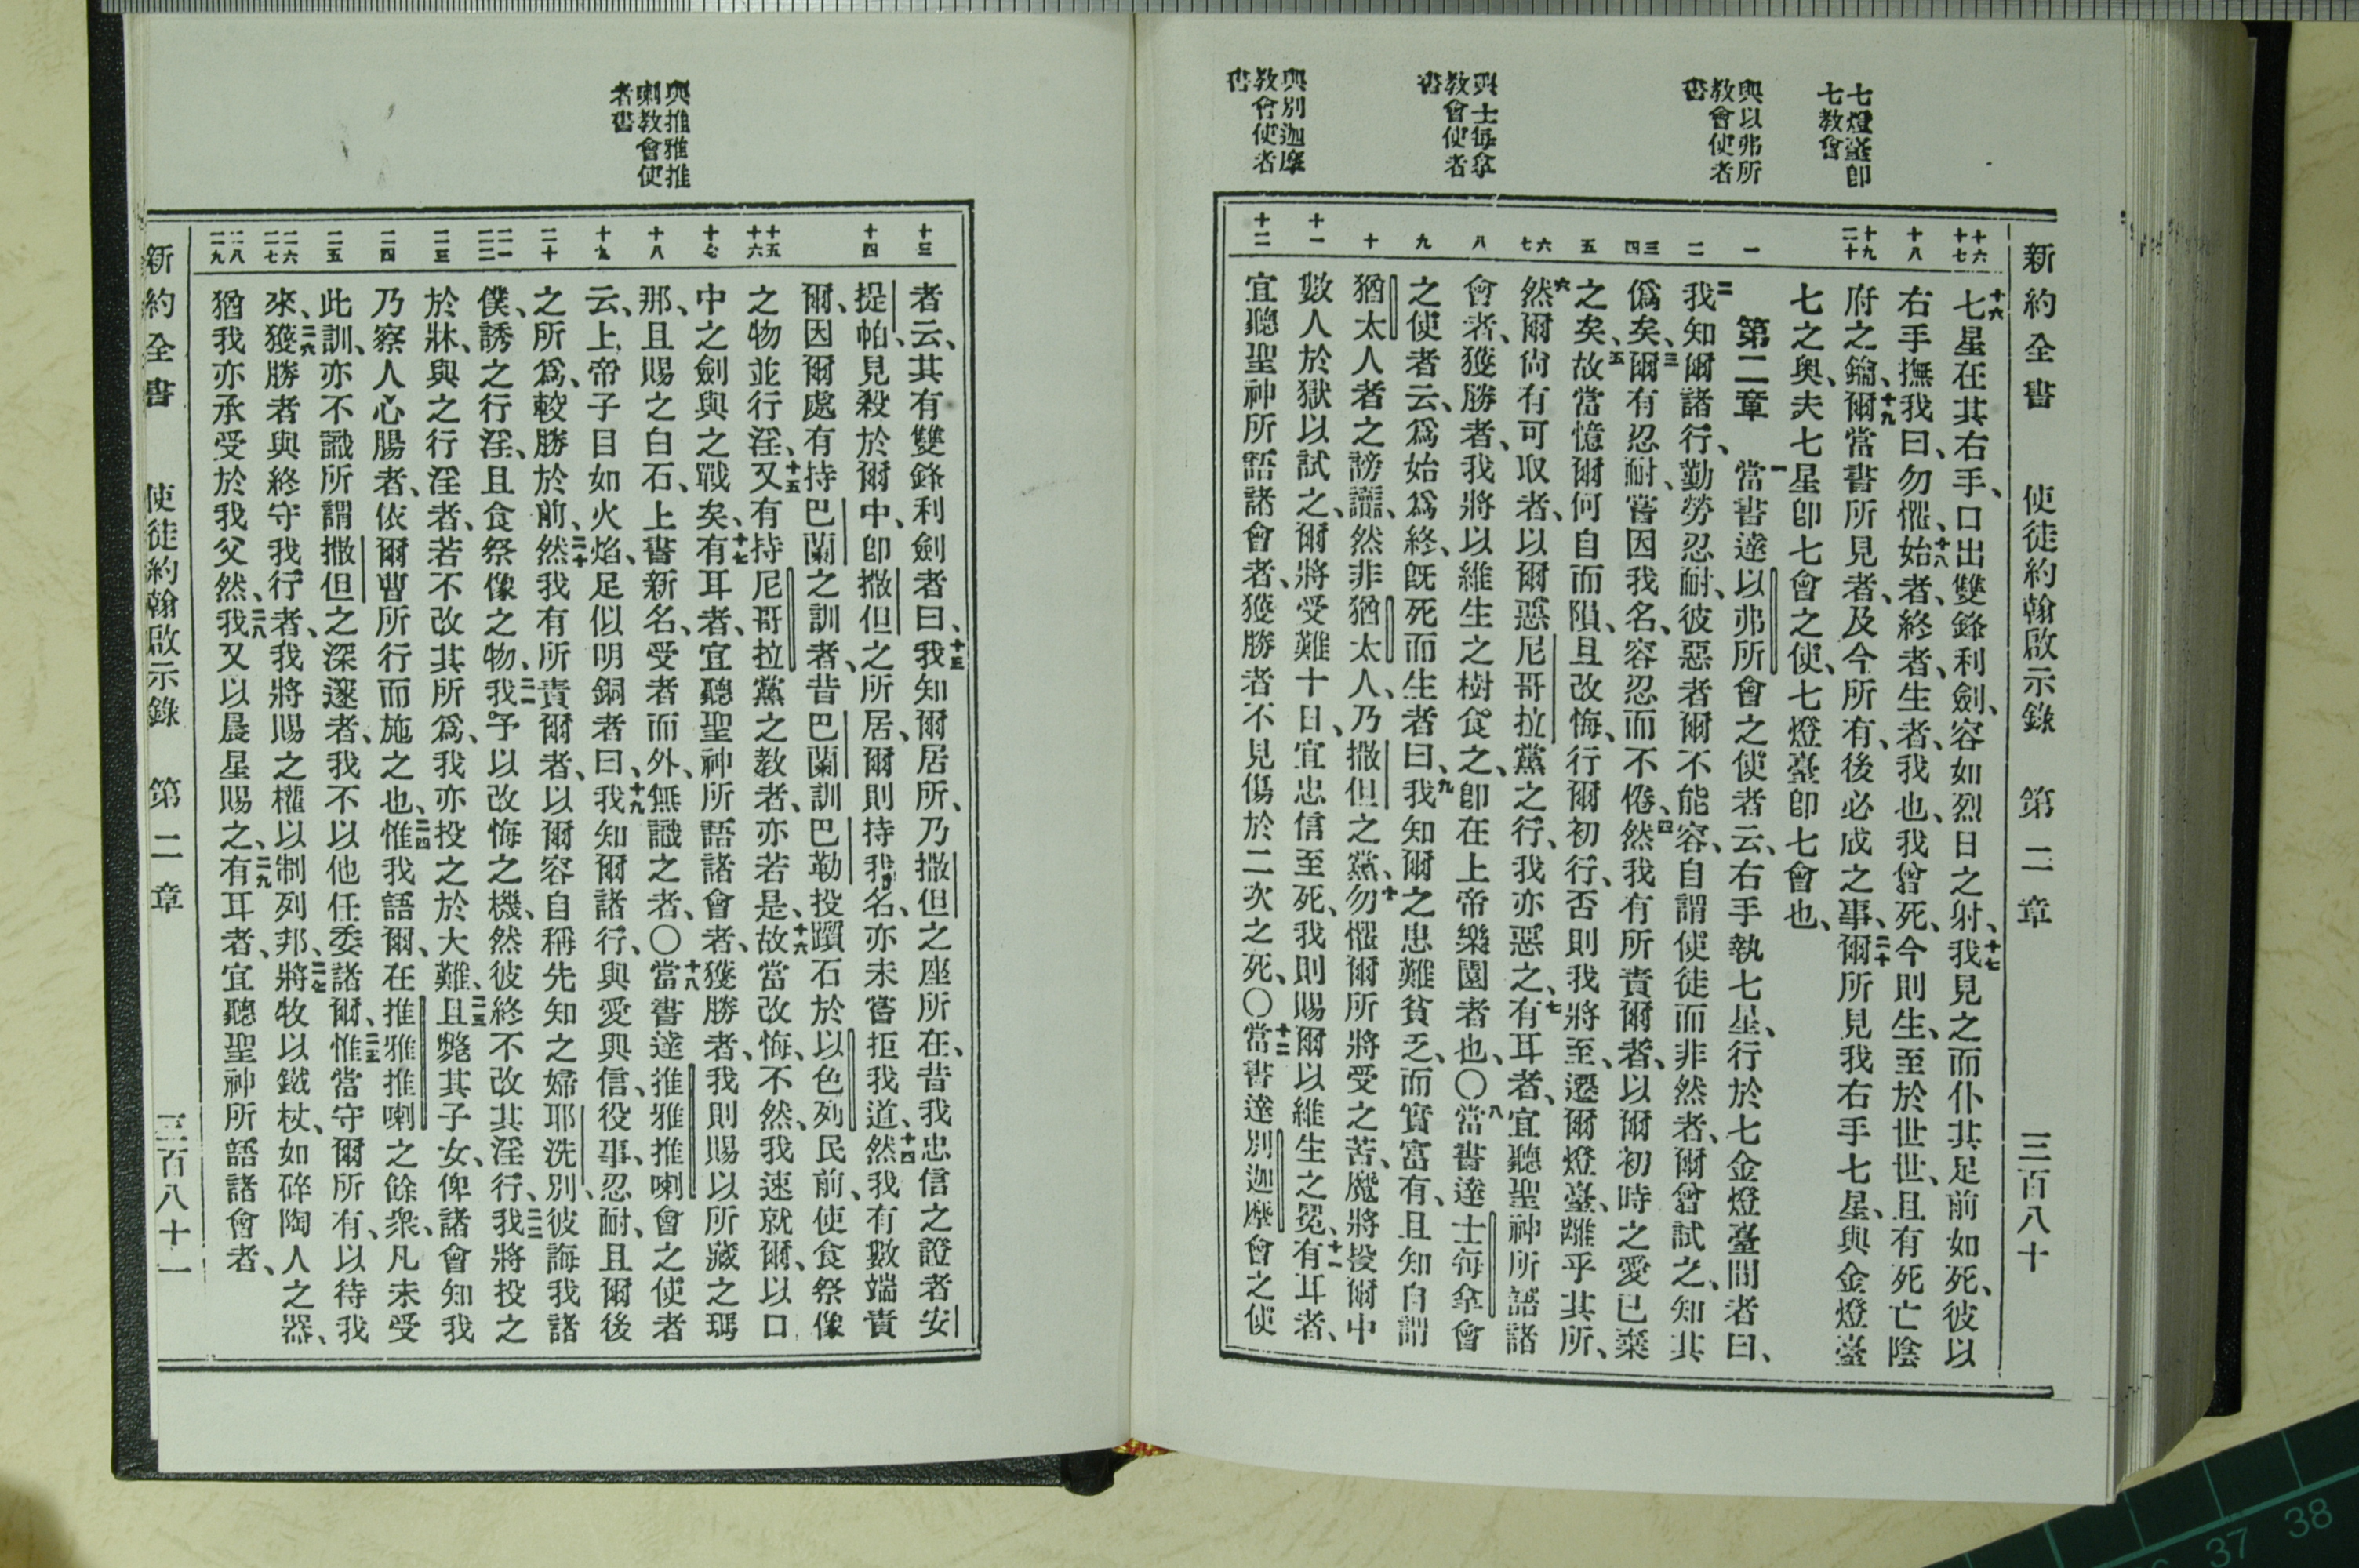 新約全書 使徒約翰啟示錄 第二章 三百八十
七燈臺卽
七教會
與以弗所
教會使者
書
與士每拿
教會使者
書
與別迦摩
教會使者
書
十六 十七 十八 十九 二十 一 二 三 四 五 六 七 八 九 十 十一 十二
十六七星在其右手、口出雙鋒利劍、容如烈日之射、十七我見之而仆其足前如死、彼以
右手撫我曰、勿懼、十八始者、終者、生者、我也、我曾死、今則生、至於世世、且有死亡陰
府之鑰、十九爾當書所見者、及今所有、後必成之事、二十爾所見我右手七星、與金燈臺
七之奧、夫七星卽七會之使、七燈臺卽七會也、
第二章 一當書達以弗所會之使者云、右手執七星、行於七金燈臺間者曰、
二我知爾諸行、勤勞忍耐、彼惡者爾不能容、自謂使徒而非然者、爾曾試之、知其
僞矣、三爾有忍耐、嘗因我名、容忍而不倦、四然我有所責爾者、以爾初時之愛已棄
之矣、五故當憶爾何自而隕、且改悔、行爾初行、否則我將至、遷爾燈臺、離乎其所、
六然爾尙有可取者、以爾惡尼哥拉黨之行、我亦惡之、七有耳者、宜聽聖神所語諸
會者、獲勝者、我將以維生之樹食之、卽在上帝樂園者也、〇八當書達士每拿會
之使者云、爲始爲終、旣死而生者曰、九我知爾之患難貧乏、而實富有、且知自謂
猶太人者之謗讟、然非猶太人、乃撒但之黨、十勿懼爾所將受之苦、魔將投爾中
數人於獄以試之、爾將受難十日、宜忠信至死、我則賜爾以維生之冕、十一有耳者、
宜聽聖神所語諸會者、獲勝者不見傷於二次之死、〇十二當書達別迦摩會之使
與推雅推
喇教會使
者書
十三 十四 十五 十六 十七 十八 十九 二十 二一 二二 二三 二四 二五 二六 二七 二八 二九
者云、其有雙鋒利劍者曰、十三我知爾居所、乃撒但之座所在、昔我忠信之證者安
提帕、見殺於爾中、卽撒但之所居、爾則持我名、亦未嘗拒我道、十四然我有數端責
爾、因爾處有持巴蘭之訓者、昔巴蘭訓巴勒投躓石於以色列民前、使食祭像
之物並行淫、十五又有持尼哥拉黨之教者、亦若是、十六故當改悔、不然、我速就爾、以口
中之劍與之戰矣、十七有耳者、宜聽聖神所語諸會者、獲勝者、我則賜以所藏之瑪
那、且賜之白石、上書新名、受者而外、無識之者、〇十八當書達推雅推喇會之使者
云、上帝子目如火焰、足似明銅者曰、十九我知爾諸行、與愛與信、役事、忍耐、且爾後
之所爲、較勝於前、二十然我有所責爾者、以爾容自稱先知之婦耶洗別、彼誨我諸
僕、誘之行淫、且食祭像之物、二一我予以改悔之機、然彼終不改其淫行、二二我將投之
於牀、與之行淫者、若不改其所爲、我亦投之於大難、二三且斃其子女、俾諸會知我
乃察人心腸者、依爾曹所行而施之也、二四惟我語爾、在推雅推喇之餘衆、凡未受
此訓、亦不識所謂撒但之深邃者、我不以他任委諸爾、二五惟當守爾所有、以待我
來、二六獲勝者與終守我行者、我將賜之權以制列邦、二七將牧以鐵杖、如碎陶人之器、
猶我亦承受於我父然、二八我又以晨星賜之、二九有耳者、宜聽聖神所語諸會者、
新約全書 使徒約翰啟示錄 第二章 三百八十一
37 38